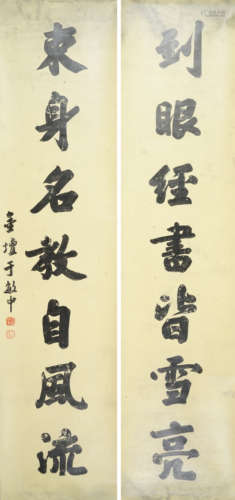 到眼經書皆雪亮
束身名教自風流
金壇于敏中